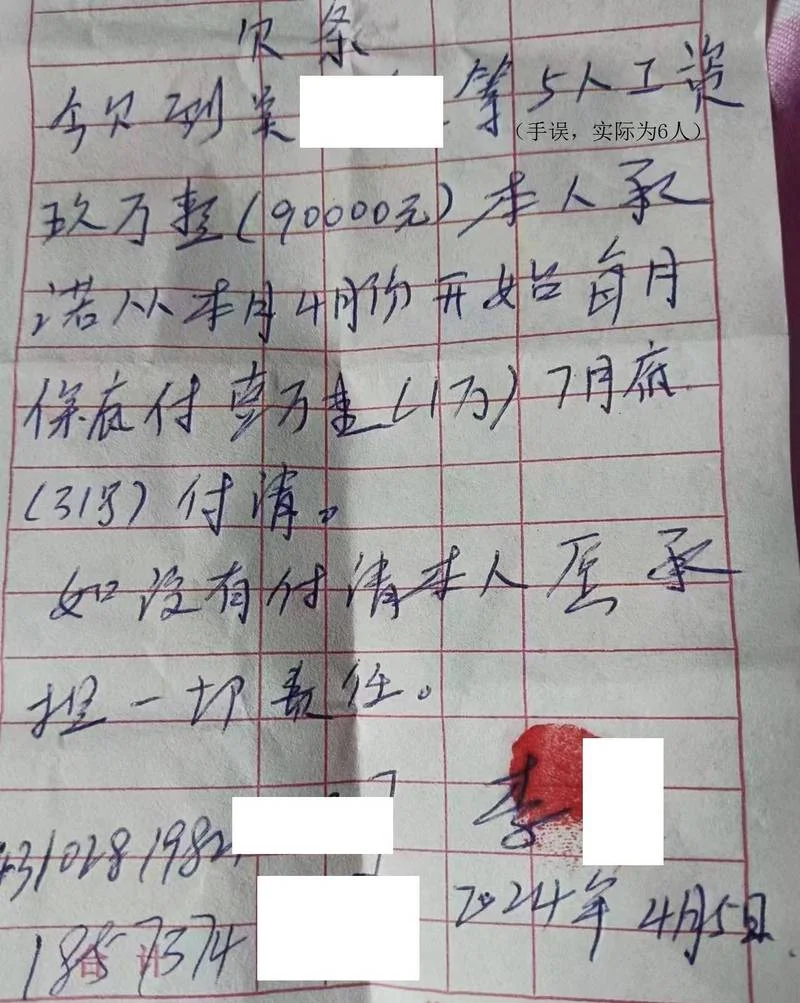 欠条
今欠到吴 等5人工资
（手误，实际为6人）
玖万整(90000元)本人承
诺从本月4月份开始每月
保底付壹万整(1万)7月底
(31号)付清。
如没有付清本人愿承
担一切责任。
李
4310281982
2024年4月5日
1857374